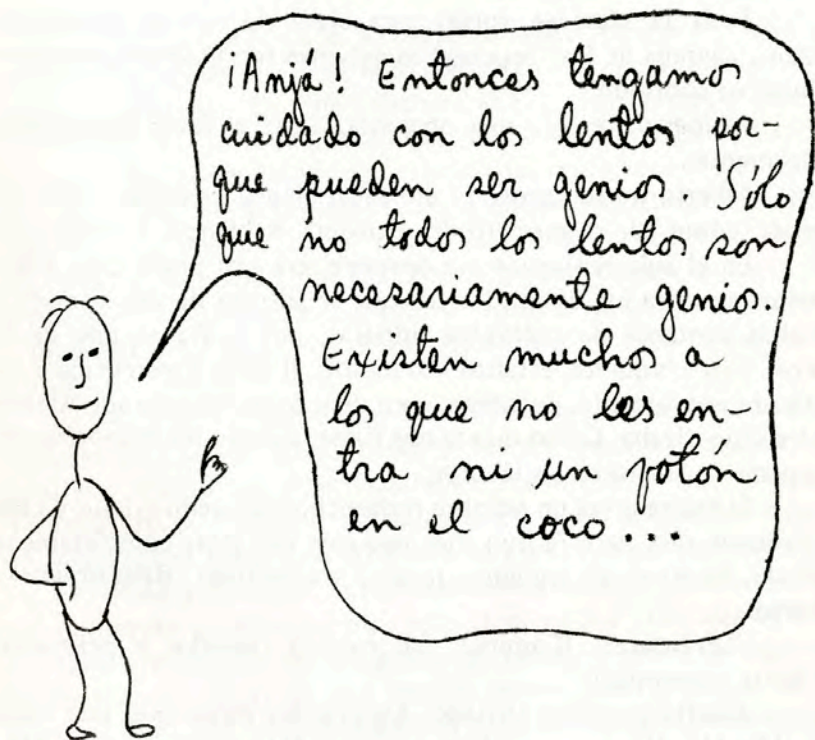 ¡Anjá! Entonces tengamos
cuidado con los lentos por-
que pueden ser genios. Sólo
que no todos los lentos son
necesariamente genios.
Existen muchos a
los que no les en-
tra ni un potón
en el coco...